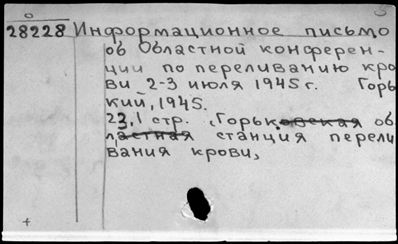 28228 Информационное письмо
об областной конферен-
ции по переливанию кро
ви 2-3 июля 1945 г. Горь
кий, 1945.
23,1 стр. Горьковская об
ластная станция перели
вания крови,
4